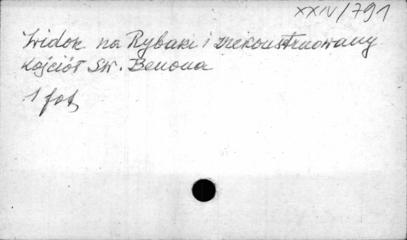 XXIV/791
Widok na Rybaki i zrekonstruowany
kościół Św. Benona
1 fot.